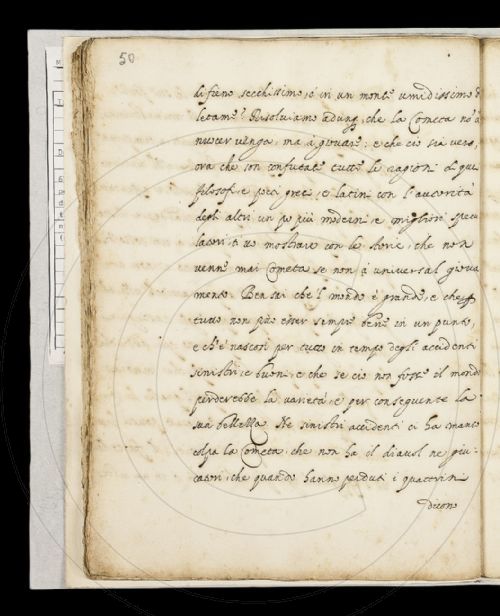 50
di fieno secchissimo, ò in un monte umidissimo di
letame? Risoluiamo adunq. che la Cometa nō à
nuocer uenga, ma à giouare; e che ciò sia uero,
ora che son confutate tutte le ragioni di quei
filosofi e poeti greci, e latini con l'autorità
degli altri un po più moderni e migliori specu
latori, ti uo mostrare con le storie, che non
uenne mai Cometa se non à uniuersal gioua
mento. Ben sai che'l mondo è grande, e che
tutto non può esser sempre bene in un punto,
e ch'è nascon per tutto in tempo degli accidenti
sinistri, e buoni, e che se ciò non fosse il mondo
perderebbe la uarietà, e per conseguente la
sua bellezza. Ne sinistri accidenti ci ha manco
colpa la Cometa, che non ha il diauol ne giu:
catori, che quando hanno perduti i quattrini
dicono